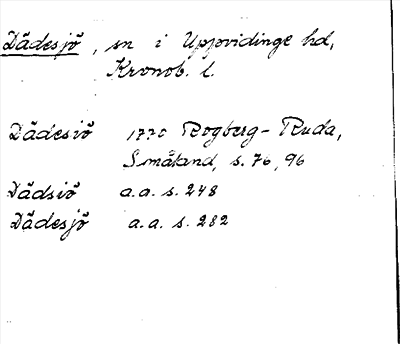 Dädesjö, sn i Uppvidinge hd,
Kronob. l.
Dädesiö 1770 Rogberg-Ruda,
Småland, s. 76, 96
Dädsiö a.a. s. 248
Dädesjö a.a. s. 282